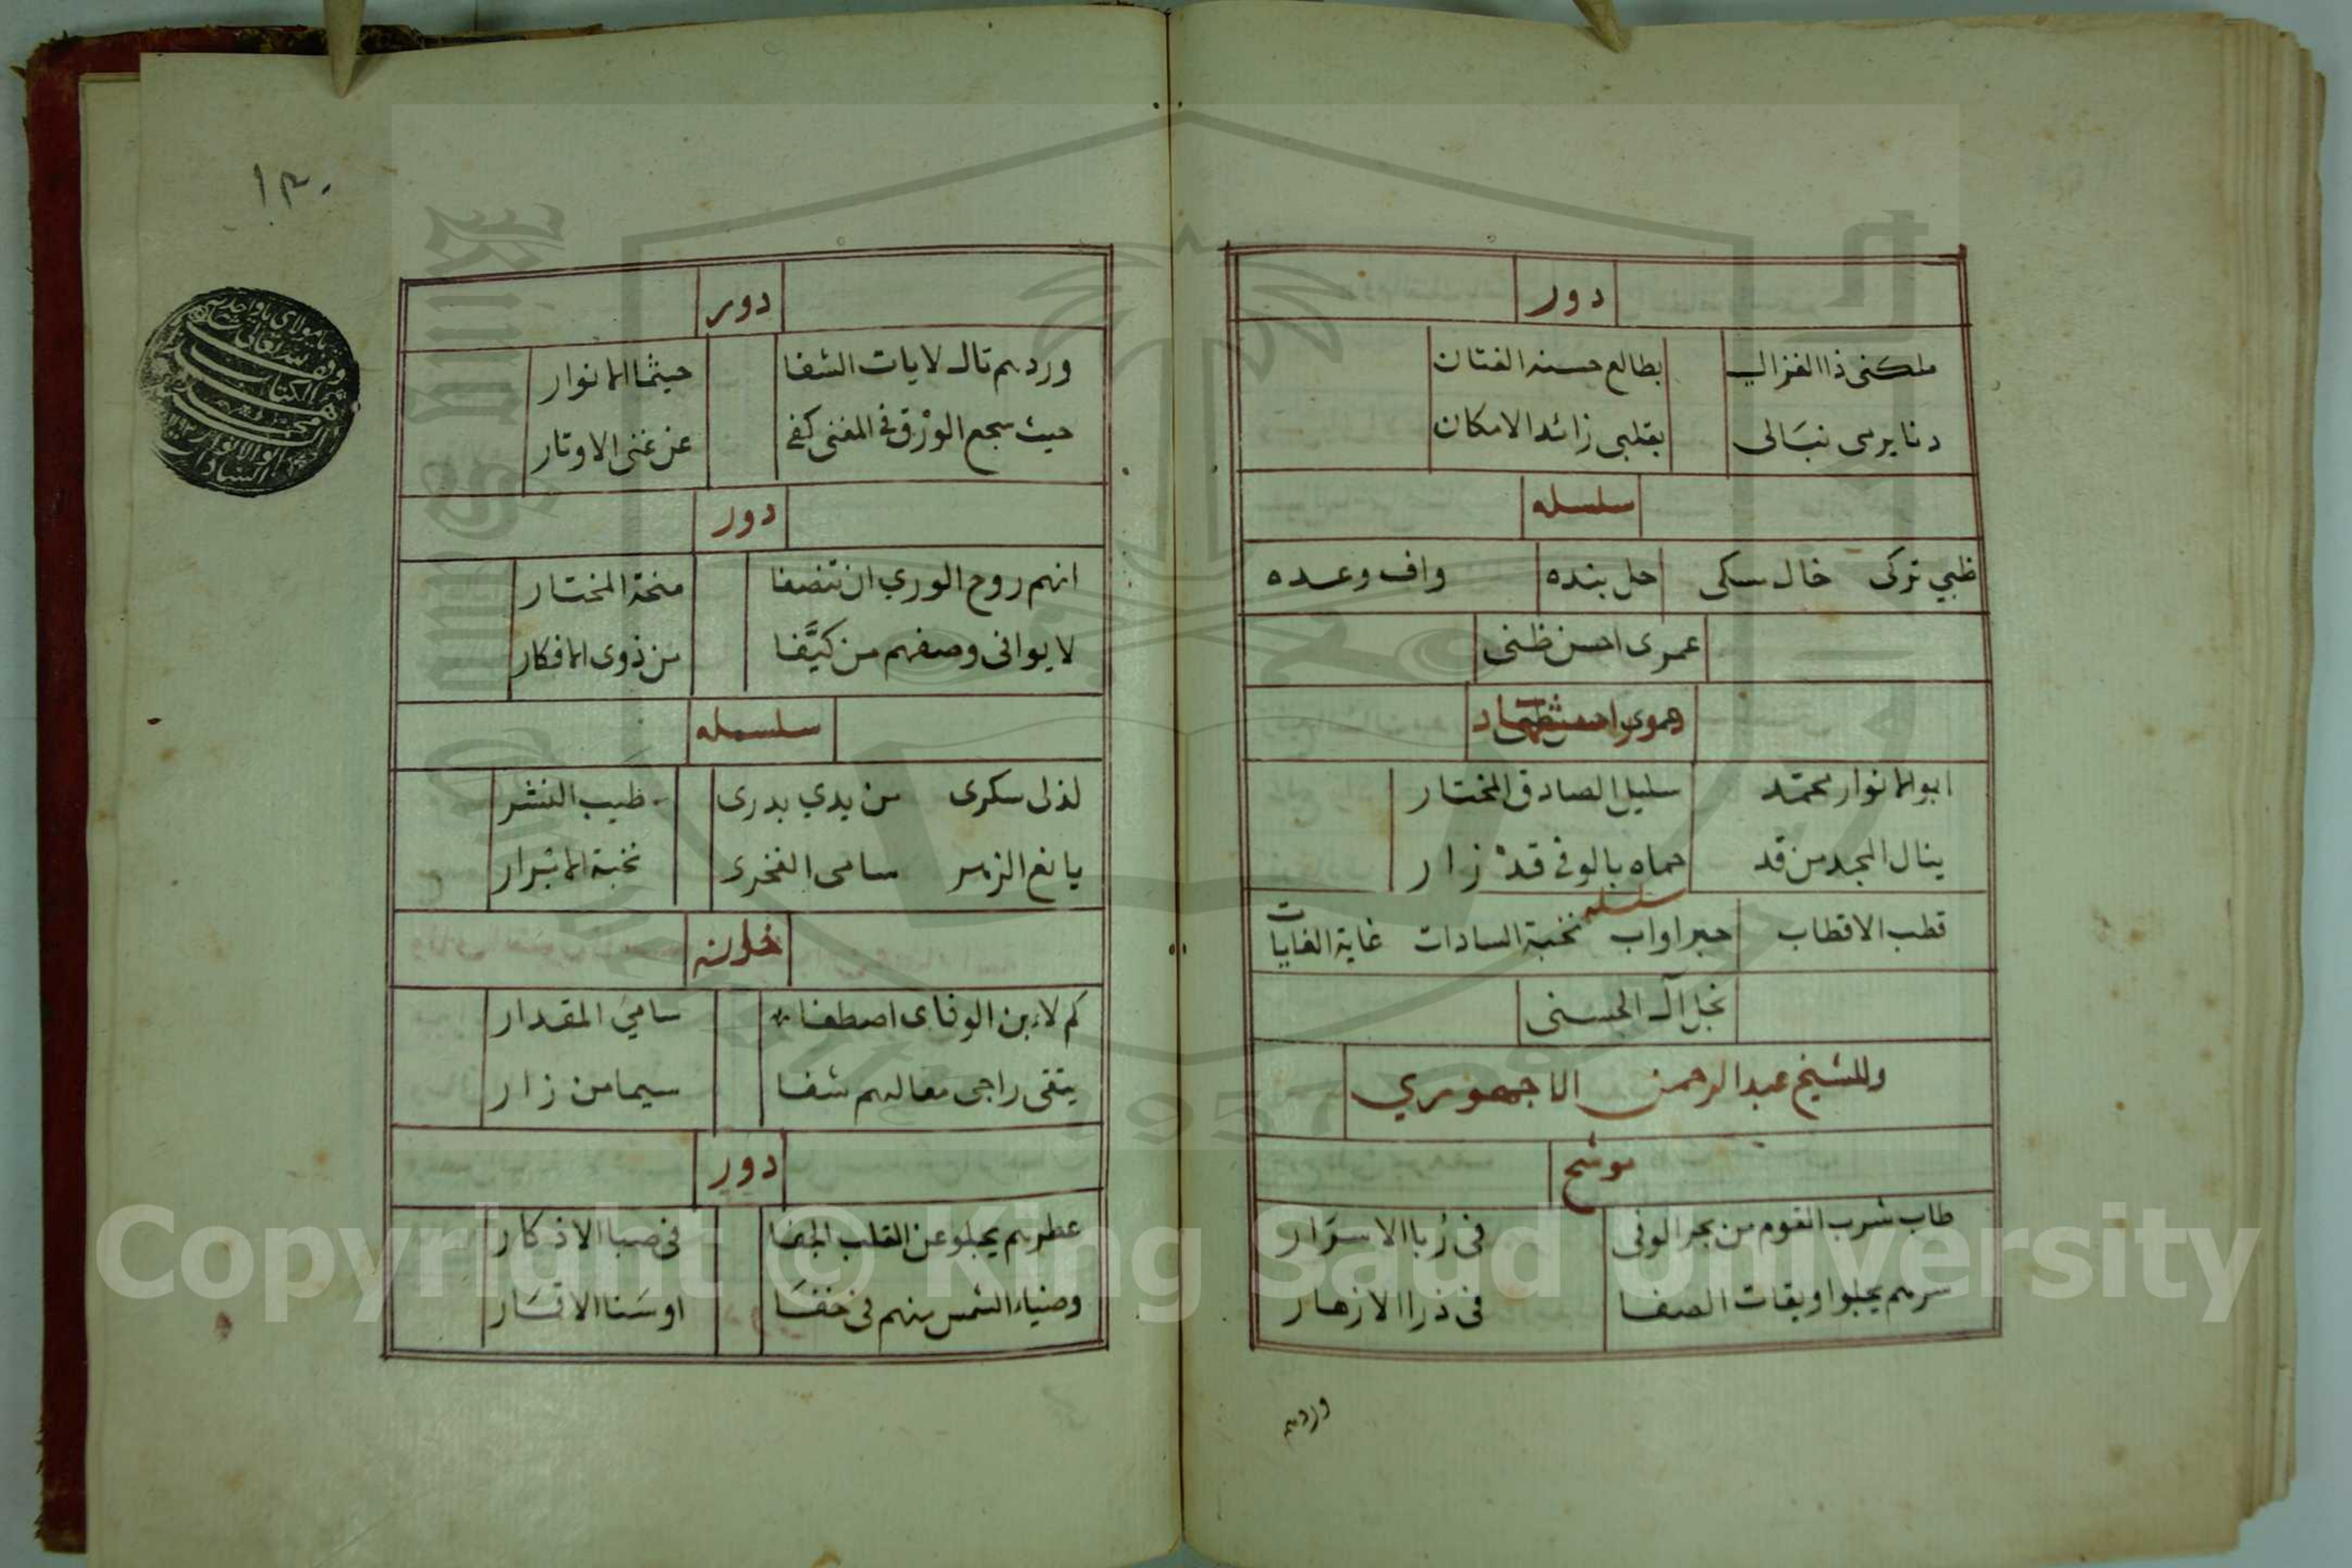 دور
ملكنى ذا الغزال بطالع حسنه الفتان
دنا يرمى نبالى بقلبى زائد الامكان
سلسله
ظبي تركى خال سكى حل بنده واف وعده
عمرى احسن ظنى
ابو الانوار محمد سليل الصادق المختار
ينال المجد من قد حماه بالوفى قد زار
سلسله
قطب الاقطاب حبر اواب نخبة السادات غاية الغايات
نجل آل الحسنى
وللشيخ عبد الرحمن الاجهوري
موشح
طاب شرب القوم من بحر الوفى فى ربا الاسرار
سرهم يجلوا ويقات الصفا فى ذرا الازهار
وردهم
١٣٠
دور
وردهم تال لايات الشفا حيثما الانوار
حيث سجع الورق فى المغنى كفى عن غنى الاوتار
دور
انهم روح الورى ان تنصفا منحة المختار
لا يوافى وصفهم من كيّفا من ذوى الافكار
سلسله
لذلى سكرى من يدي بدرى طيب النشر
يانع الزهر سامى الفخرى نخبة الابرار
خانه
كم لابن الوفاى اصطفا سامي المقدار
ينقى راجى معاليهم شفا سيما من زار
دور
عطرهم يجلو عن القلب الجفا فى صبا الاذكار
وضياء الشمس منهم فى خفا او سنا الاقمار
يا مولاي يا واحد
وقف لله تعالى
الكتاب
محمد
ابو الانوار
السادات
Copyright © King Saud University
1957